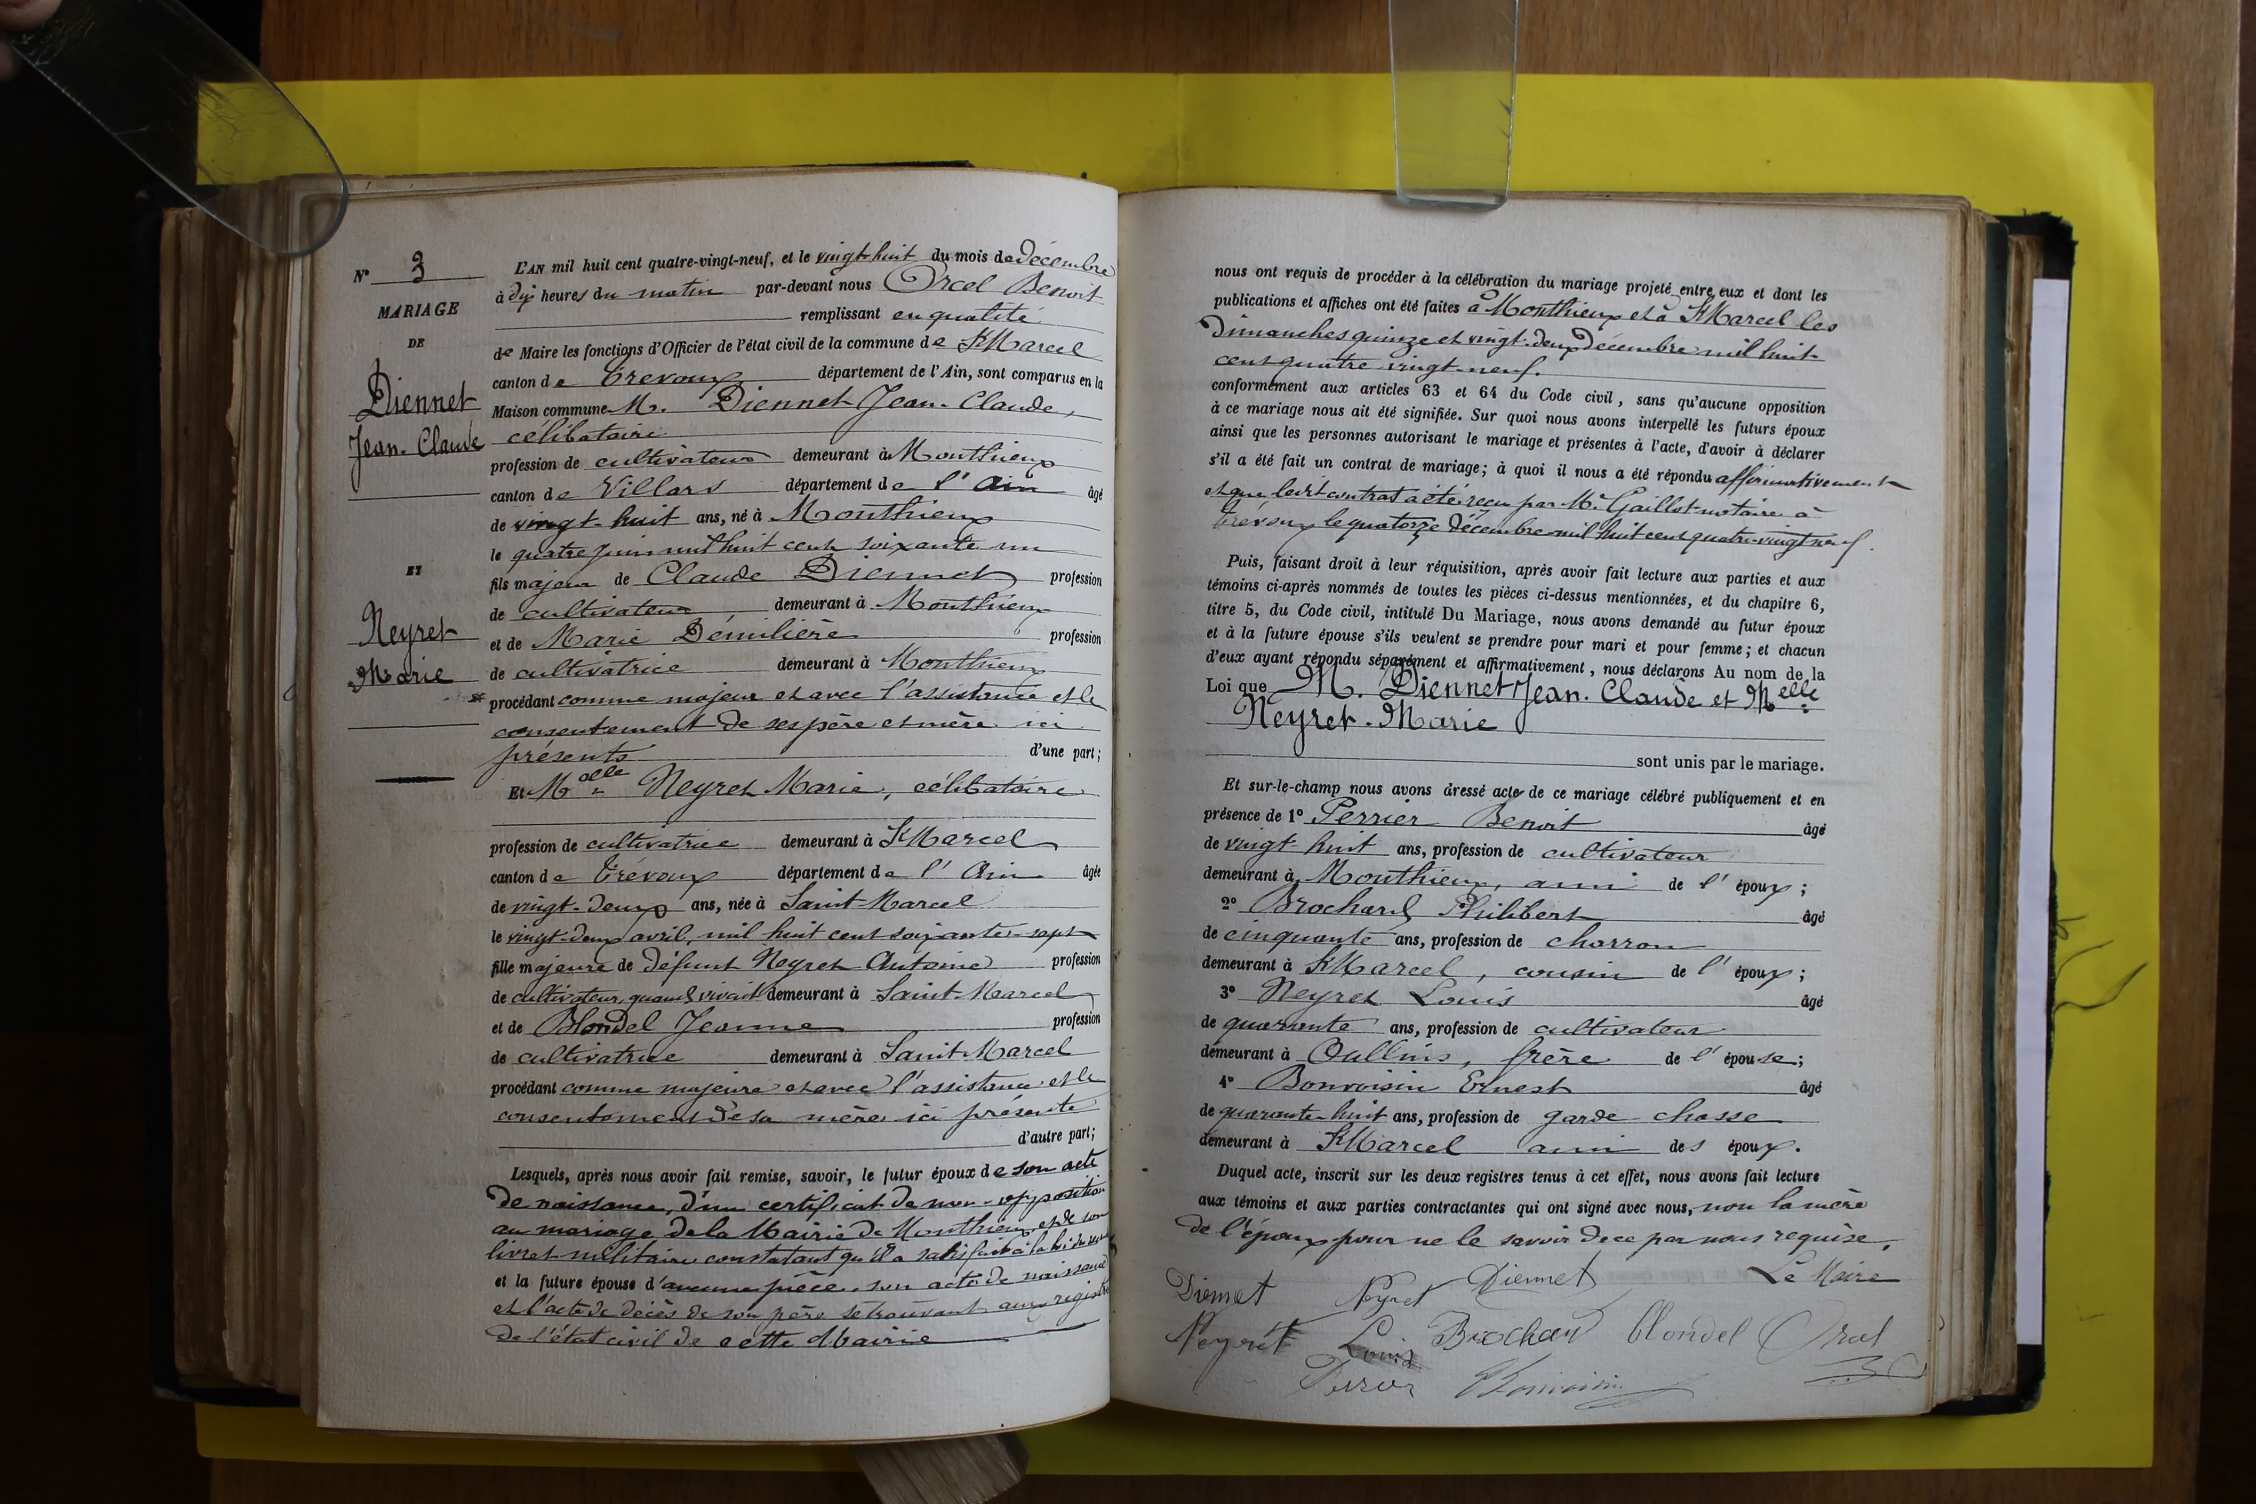 N° 3
MARIAGE
DE
Diennet
Jean-Claude
ET
Neyret
Marie
L'AN mil huit cent quatre-vingt-neuf, et le vingt-huit du mois de décembre
à dix heures du matin par-devant nous Orcel Benoit
remplissant en qualité
de Maire les fonctions d'Officier de l'état civil de la commune de St Marcel
canton de Trévoux département de l'Ain, sont comparus en la
Maison commune M. Diennet Jean-Claude,
célibataire
profession de cultivateur demeurant à Monthieux
canton de Villars département de l'Ain âgé
de vingt-huit ans, né à Monthieux
le quatre juin mil huit cent soixante un
fils majeur de Claude Diennet profession
de cultivateur, demeurant à Monthieux
et de Marie Démilière profession
de cultivatrice demeurant à Monthieux
procédant comme majeur et avec l'assistance et le
consentement de ses père et mère ici
présents d'une part;
Et Melle Neyret Marie, célibataire
profession de cultivatrice demeurant à St Marcel
canton de Trévoux département de l'Ain âgée
de vingt-deux ans, née à Saint-Marcel
le vingt-deux avril, mil huit cent soixante-sept
fille majeure de défunt Neyret Antoine profession
de cultivateur, quand vivait demeurant à Saint-Marcel
et de Blondel Jeanne profession
de cultivatrice demeurant à Saint-Marcel
procédant comme majeure et avec l'assistance et le
consentement de sa mère ici présente
d'autre part;
Lesquels, après nous avoir fait remise, savoir, le futur époux de son acte
de naissance, d'un certificat de non-opposition
au mariage de la Mairie de Monthieux, et de son
livret militaire constatant qu'il a satisfait à la loi du
et la future épouse d'aucune pièce, son acte de naissance
et l'acte de décès de son père se trouvant aux registres
de l'état civil de cette Mairie
nous ont requis de procéder à la célébration du mariage projeté entre eux et dont les
publications et affiches ont été faites à Monthieux et à St Marcel les
dimanches quinze et vingt-deux décembre mil huit
cent quatre vingt-neuf.
conformément aux articles 63 et 64 du Code civil, sans qu'aucune opposition
à ce mariage nous ait été signifiée. Sur quoi nous avons interpellé les futurs époux
ainsi que les personnes autorisant le mariage et présentes à l'acte, d'avoir à déclarer
s'il a été fait un contrat de mariage; à quoi il nous a été répondu affirmativement
et que ledit contrat a été reçu par Me Gaillot notaire à
Trévoux le quatorze décembre mil huit cent quatre-vingt neuf.
Puis, faisant droit à leur réquisition, après avoir fait lecture aux parties et aux
témoins ci-après nommés de toutes les pièces ci-dessus mentionnées, et du chapitre 6,
titre 5, du Code civil, intitulé Du Mariage, nous avons demandé au futur époux
et à la future épouse s'ils veulent se prendre pour mari et pour femme; et chacun
d'eux ayant répondu séparément et affirmativement, nous déclarons Au nom de la
Loi que M. Diennet Jean-Claude et Melle
Neyret-Marie
sont unis par le mariage.
Et sur-le-champ nous avons dressé acte de ce mariage célébré publiquement et en
présence de 1° Perrier Benoit âgé
de vingt-huit ans, profession de cultivateur
demeurant à Monthieux, ami de l'époux;
2° Brochard Philibert âgé
de cinquante ans, profession de charron
demeurant à St Marcel, cousin de l'époux;
3° Neyret Louis âgé
de quarante ans, profession de cultivateur
demeurant à Oullins, frère de l'épouse;
4° Bonvoisin Ernest âgé
de quarante-huit ans, profession de garde chasse
demeurant à St Marcel ami des époux.
Duquel acte, inscrit sur les deux registres tenus à cet effet, nous avons fait lecture
aux témoins et aux parties contractantes qui ont signé avec nous, non la mère
de l'époux pour ne le savoir de ce par nous requise.
Diennet Neyret Diennet Le Maire
Neyret Louis Brochard blondel Orcel
Perrier Bonvoisin